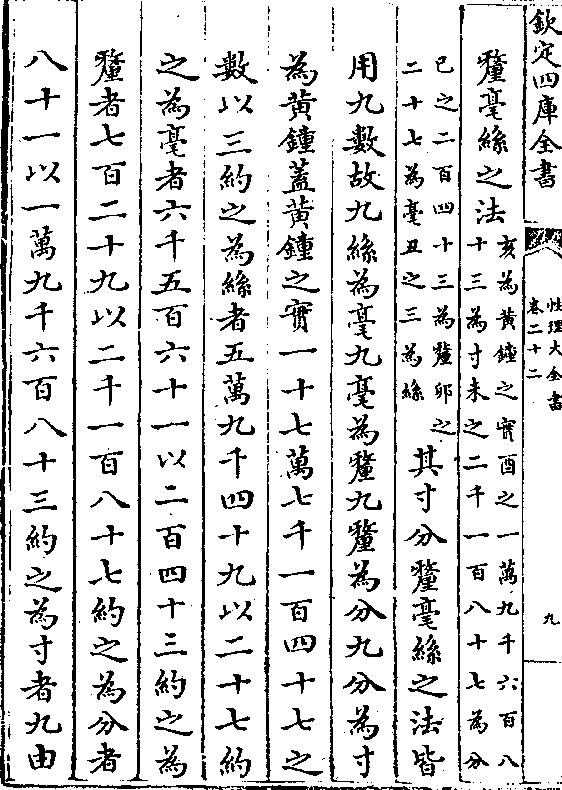 欽定四庫全書
性理大全書
卷二十二
九
釐毫絲之法
亥為黄鐘之實酉之一萬九千六百八
十三為寸未之二千一百八十七為分
巳之二百四十三為釐卯之
二十七為毫丑之三為絲
其寸分釐毫絲之法皆
用九數故九絲為毫九毫為釐九釐為分九分為寸
為黄鐘蓋黄鐘之實一十七萬七千一百四十七之
數以三約之為絲者五萬九千四十九以二十七約
之為毫者六千五百六十一以二百四十三約之為
釐者七百二十九以二千一百八十七約之為分者
八十一以一萬九千六百八十三約之為寸者九由